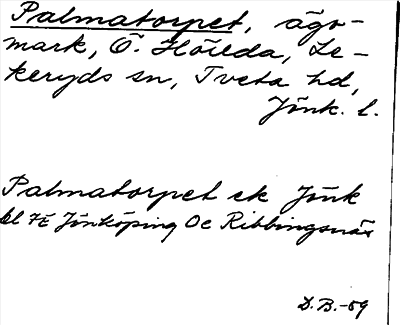 Palmatorpet, ägo-
mark, Ö. Höilda, Le-
keryds sn, Tveta hd,
Jönk. l.
Palmatorpet ek Jönk
bl 7E Jönköping Oc Ribbingsnäs
D.B.-59